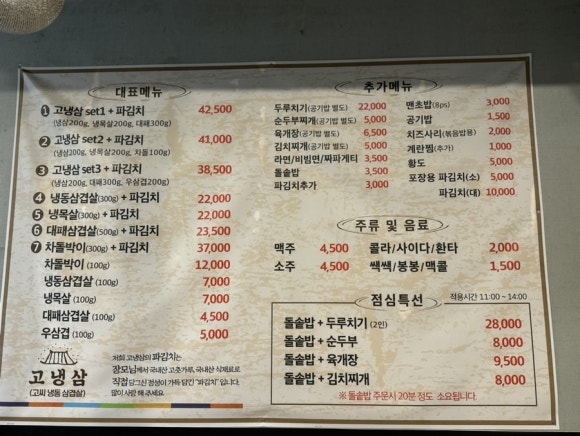 대표메뉴
① 고냉삼 set1 + 파김치 42,500
(냉삼200g, 냉목살200g, 대패300g)
② 고냉삼 set2 + 파김치 41,000
(냉삼200g, 냉목살200g, 차돌100g)
③ 고냉삼 set3 + 파김치 38,500
(냉삼200g, 대패300g, 우삼겹200g)
④ 냉동삼겹살(300g) + 파김치 22,000
⑤ 냉목살(300g) + 파김치 22,000
⑥ 대패삼겹살(500g) + 파김치 23,500
⑦ 차돌박이(300g) + 파김치 37,000
차돌박이 (100g) 12,000
냉동삼겹살 (100g) 7,000
냉목살 (100g) 7,000
대패삼겹살 (100g) 4,500
우삼겹 (100g) 5,000
고냉삼
(고씨 냉동 삼겹살)
저희 고냉삼의 파김치는
장모님께서 국내산 고춧가루, 국내산 식재료로
직접 담그신 정성이 가득 담긴 "파김치" 입니다.
많이 사랑 해 주세요.
추가메뉴
두루치기(공기밥 별도) 22,000
순두부찌개(공기밥 별도) 5,000
육개장(공기밥 별도) 6,500
김치찌개(공기밥 별도) 5,000
라면/비빔면/짜파게티 3,500
돌솥밥 3,500
파김치추가 3,000
맨초밥(8ps) 3,000
공기밥 1,500
치즈사리(볶음밥용) 2,000
계란찜(추가) 1,000
황도 5,000
포장용 파김치(소) 5,000
파김치(대) 10,000
주류 및 음료
맥주 4,500 콜라/사이다/환타 2,000
소주 4,500 쌕쌕/봉봉/맥콜 1,500
점심특선 적용시간 11:00 ~ 14:00
돌솥밥 + 두루치기 (2인) 28,000
돌솥밥 + 순두부 8,000
돌솥밥 + 육개장 9,500
돌솥밥 + 김치찌개 8,000
※ 돌솥밥 주문시 20분 정도 소요됩니다.